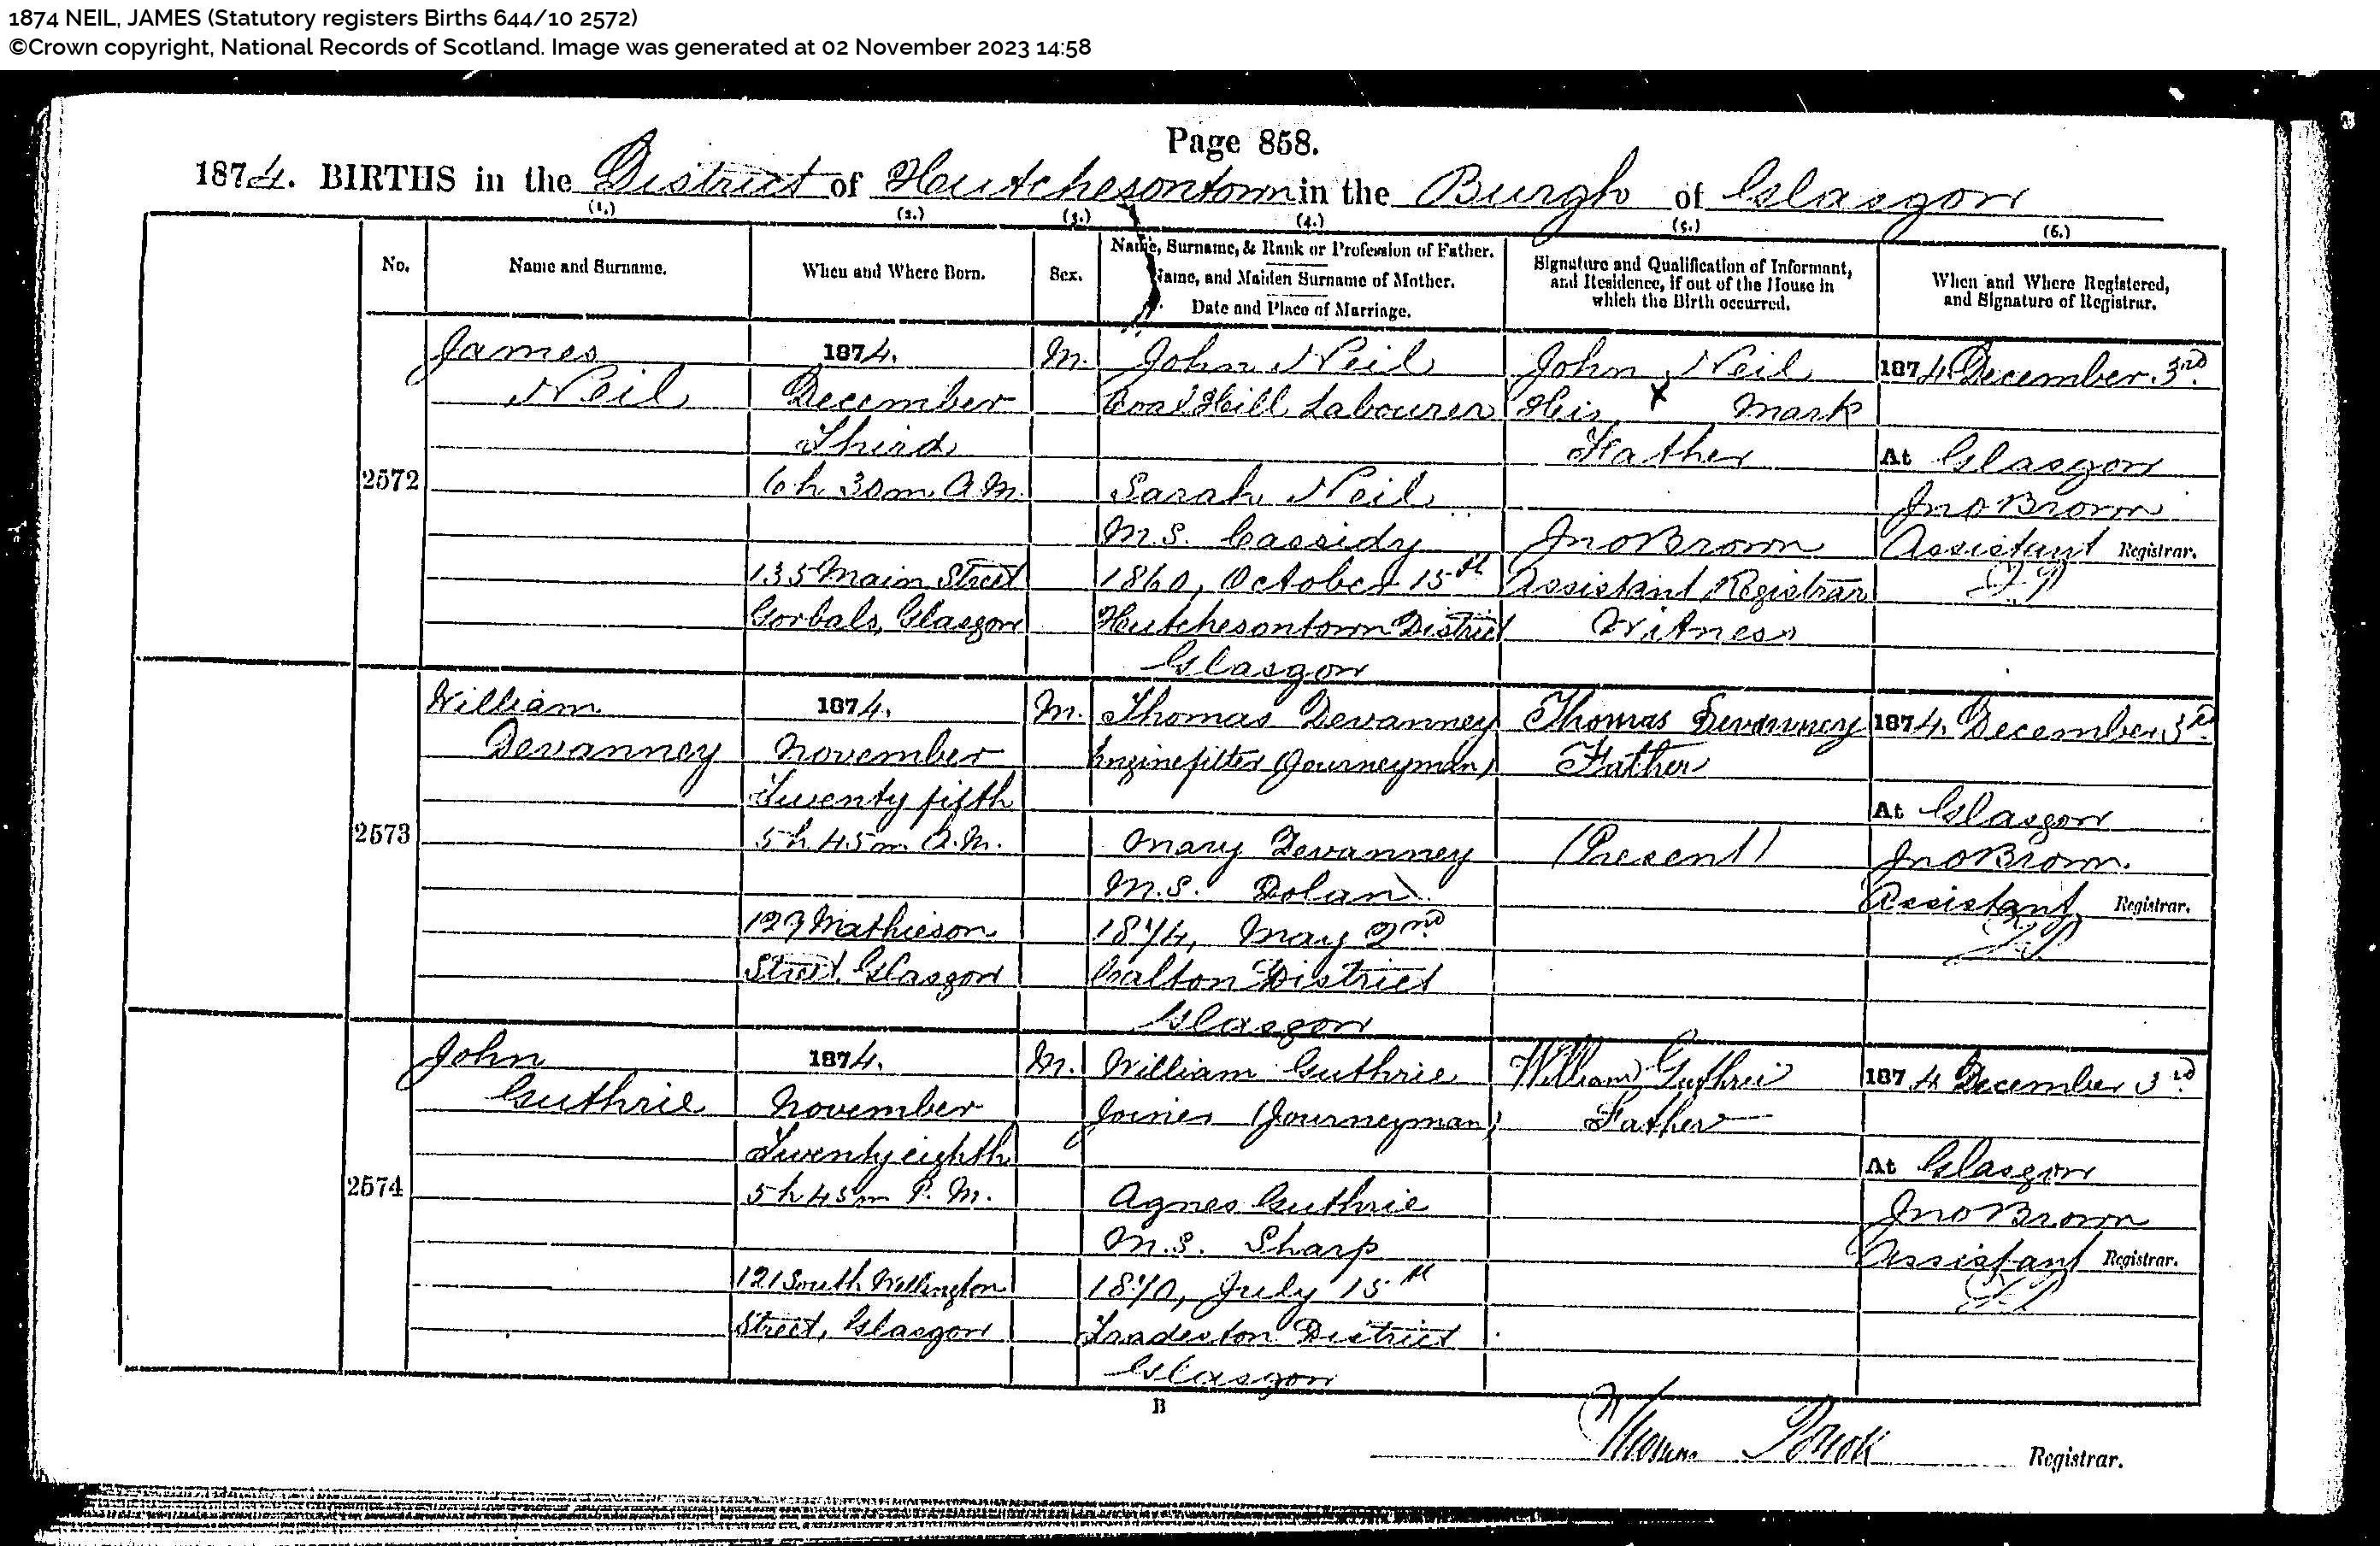 1874 NEIL, JAMES (Statutory registers Births 644/10 2572)
©Crown copyright, National Records of Scotland. Image was generated at 02 November 2023 14:58
Page 858.
1874. BIRTHS in the District of Hutchesontown in the Burgh of Glasgow
(1.) (2.) (3.) (4.) (5.) (6.)
No.
Name and Surname.
When and Where Born.
Sex.
Name, Surname, & Rank or Profession of Father.
Name, and Maiden Surname of Mother.
Date and Place of Marriage.
Signature and Qualification of Informant,
and Residence, if out of the House in
which the Birth occurred.
When and Where Registered,
and Signature of Registrar.
2572
James
Neil
1874.
December
Third
6 h 30 m. A.M.
135 Main Street
Gorbals, Glasgow
M.
John Neil
Coal Hill Labourer
Sarah Neil
M.S. Cassidy
1860, October 15th
Hutchesontown District
Glasgow
John Neil
His x Mark
Father
Jno Brown
Assistant Registrar
Witness
1874. December 3rd
At Glasgow
Jno Brown
Assistant Registrar.
2573
William
Devanney
1874.
November
Twenty fifth
5 h 45 m. A.M.
127 Mathieson
Street, Glasgow
M.
Thomas Devanney
Enginefitter (Journeyman)
Mary Devanney
M.S. Dolan
1874, May 2nd
Calton District
Glasgow
Thomas Devanney
Father
(Present)
1874. December 3rd
At Glasgow
Jno Brown
Assistant Registrar.
2574
John
Guthrie
1874.
November
Twenty eighth
5 h 45 m P.M.
121 South Wellington
Street, Glasgow
M.
William Guthrie
Joiner (Journeyman)
Agnes Guthrie
M.S. Sharp
1870, July 15th
Tradeston District
Glasgow
William Guthrie
Father
1874 December 3rd
At Glasgow
Jno Brown
Assistant Registrar.
B
Registrar.